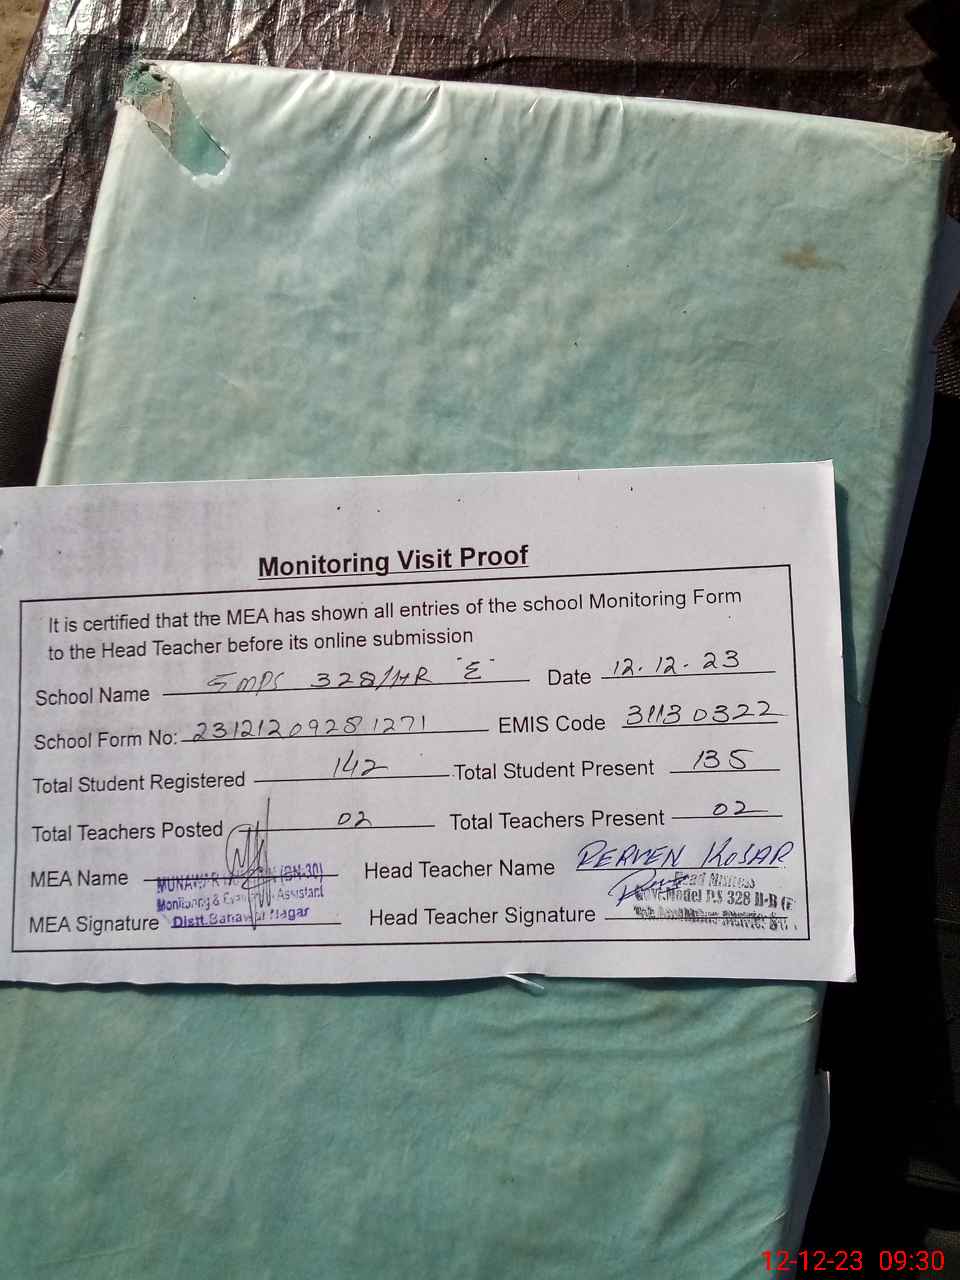 Monitoring Visit Proof
It is certified that the MEA has shown all entries of the school Monitoring Form
to the Head Teacher before its online submission
School Name GMPS 328/HR "E" Date 12.12.23
School Form No: 23121209281271 EMIS Code 31130322
Total Student Registered 142 Total Student Present 135
Total Teachers Posted 02 Total Teachers Present 02
MEA Name MUNAWAR (BN-30) Head Teacher Name PERVEN KOSAR
Monitoring & Assistant Head Mistress
MEA Signature Distt. Bahawal Nagar Head Teacher Signature Govt. Model P.S 328 H-R (E
12-12-23 09:30